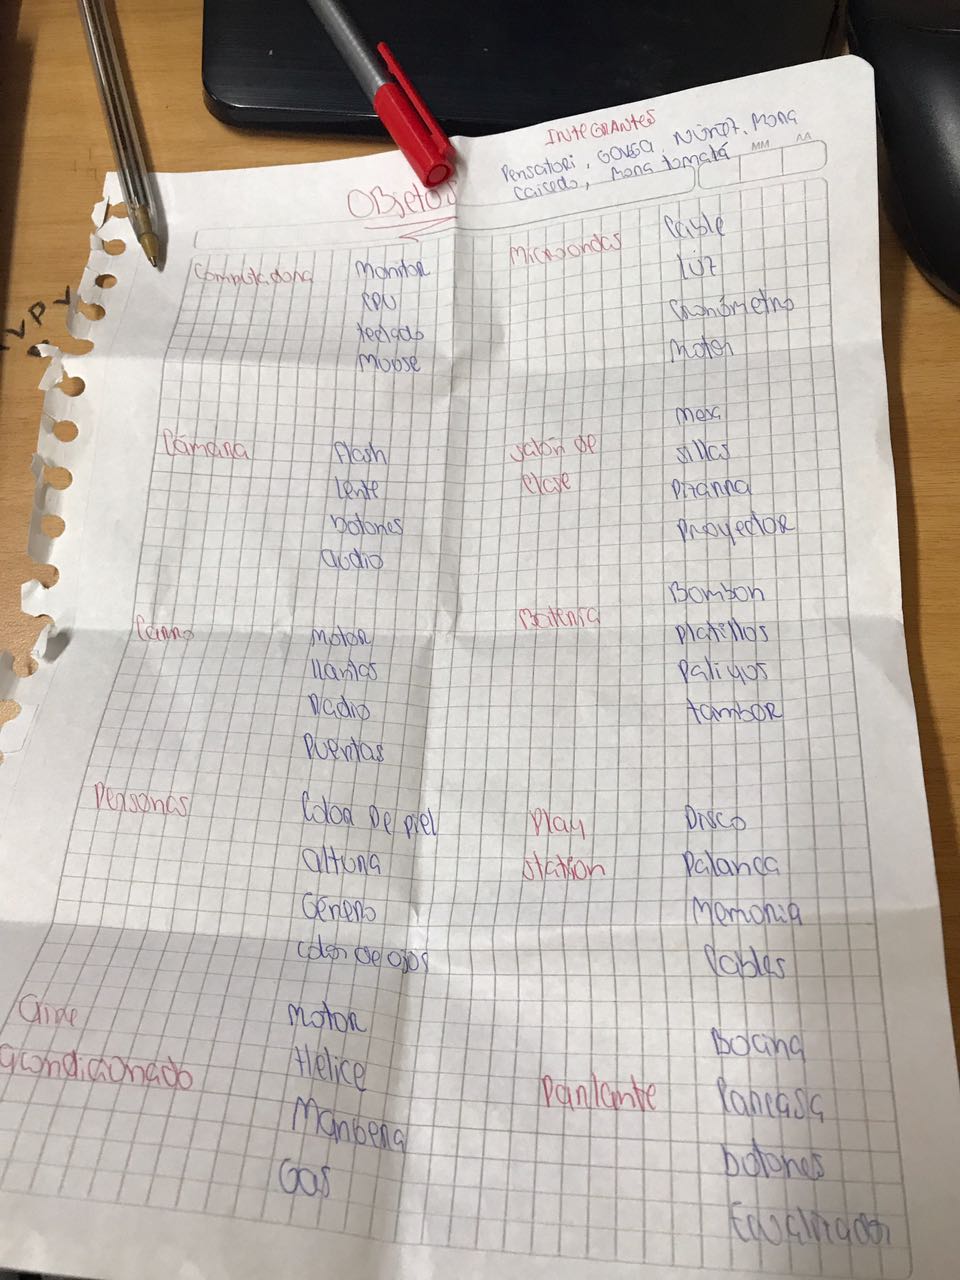 INTEGRANTES
Pensatori, GOUSA, NúñOz, Mora
Caicedo, Mora tomatá
MM
AA
Objetos
Computadora
Monitor
CPU
teclado
Mouse
Cámara
flash
lente
botones
audio
Carro
Motor
llantas
Radio
Puertas
Personas
Color De piel
altura
Género
color de ojos
aire
acondicionado
Motor
Helice
Manbera
Gas
Microondas
Cable
luz
Cronómetro
Motor
salón de
clase
mesa
sillas
Pizarra
Proyector
Bateria
Bombon
Platillos
Paliyos
tambor
Play
station
Disco
Palanca
Memoria
Cables
Parlante
Bocina
Carcasa
botones
Equalizador